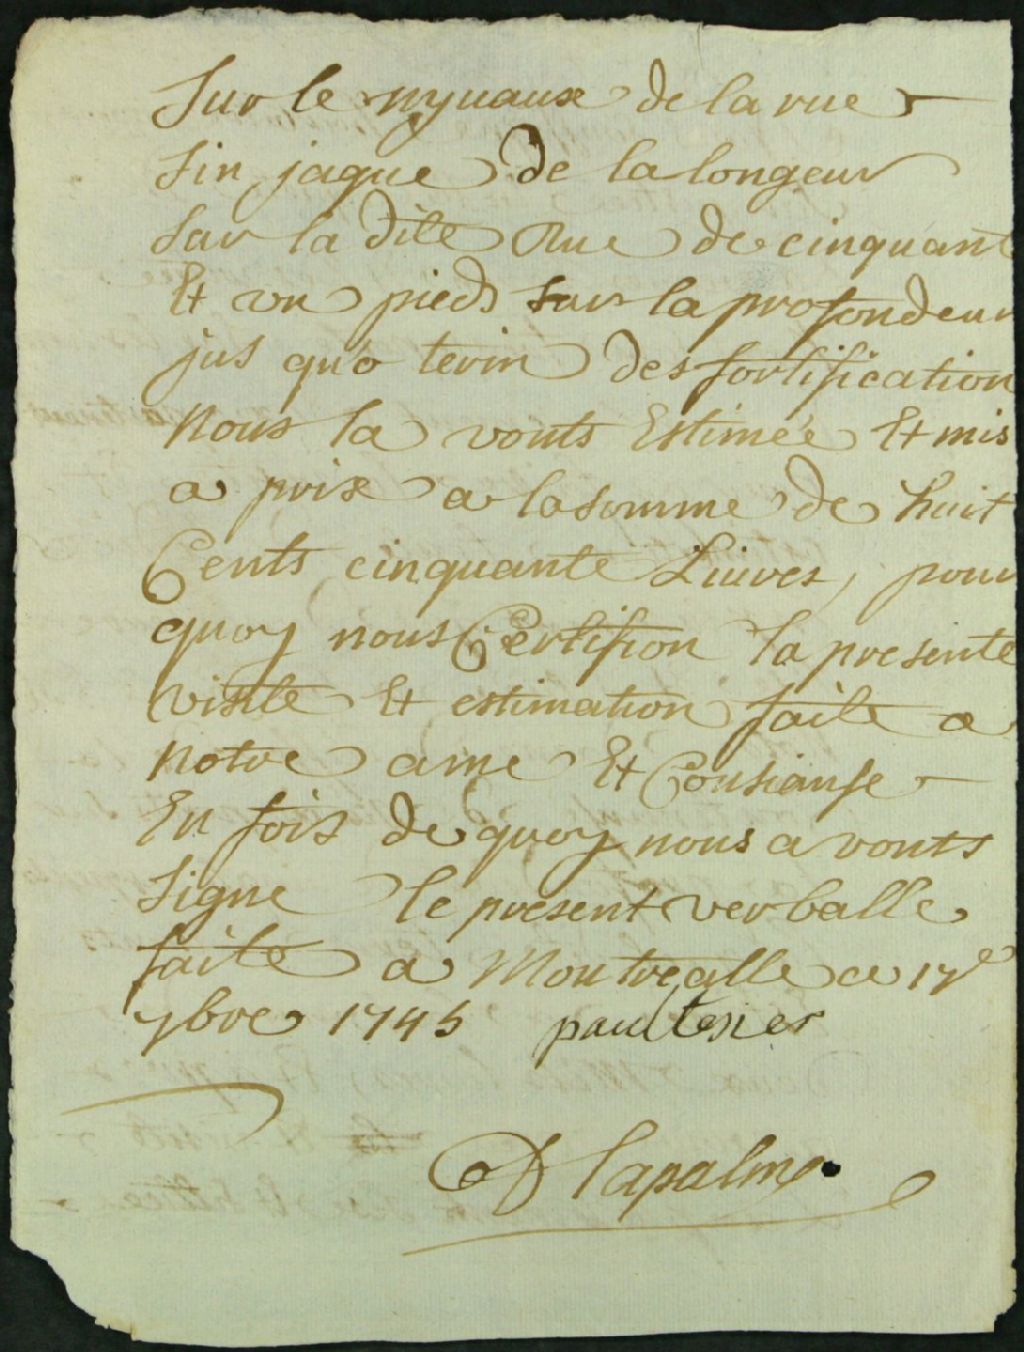 Sur le nyuaux de la rue
Sin jaque de la longeur
Sur la dite Rue de cinquante
Et un pieds sur la profondeur
jus qu'o terin des fortification
Nous la vonts Estimée Et mis
a prix a la somme de huit
Cents cinquante Liures, pour
quoy nous Certifion la presente
visitte Et estimation faite a
notre ame Et Consianse
En fois de quoy nous a vonts
Signe le present verballe
faite a Montrealle ce 17e
7bre 1745 paul tesier
D lapalme